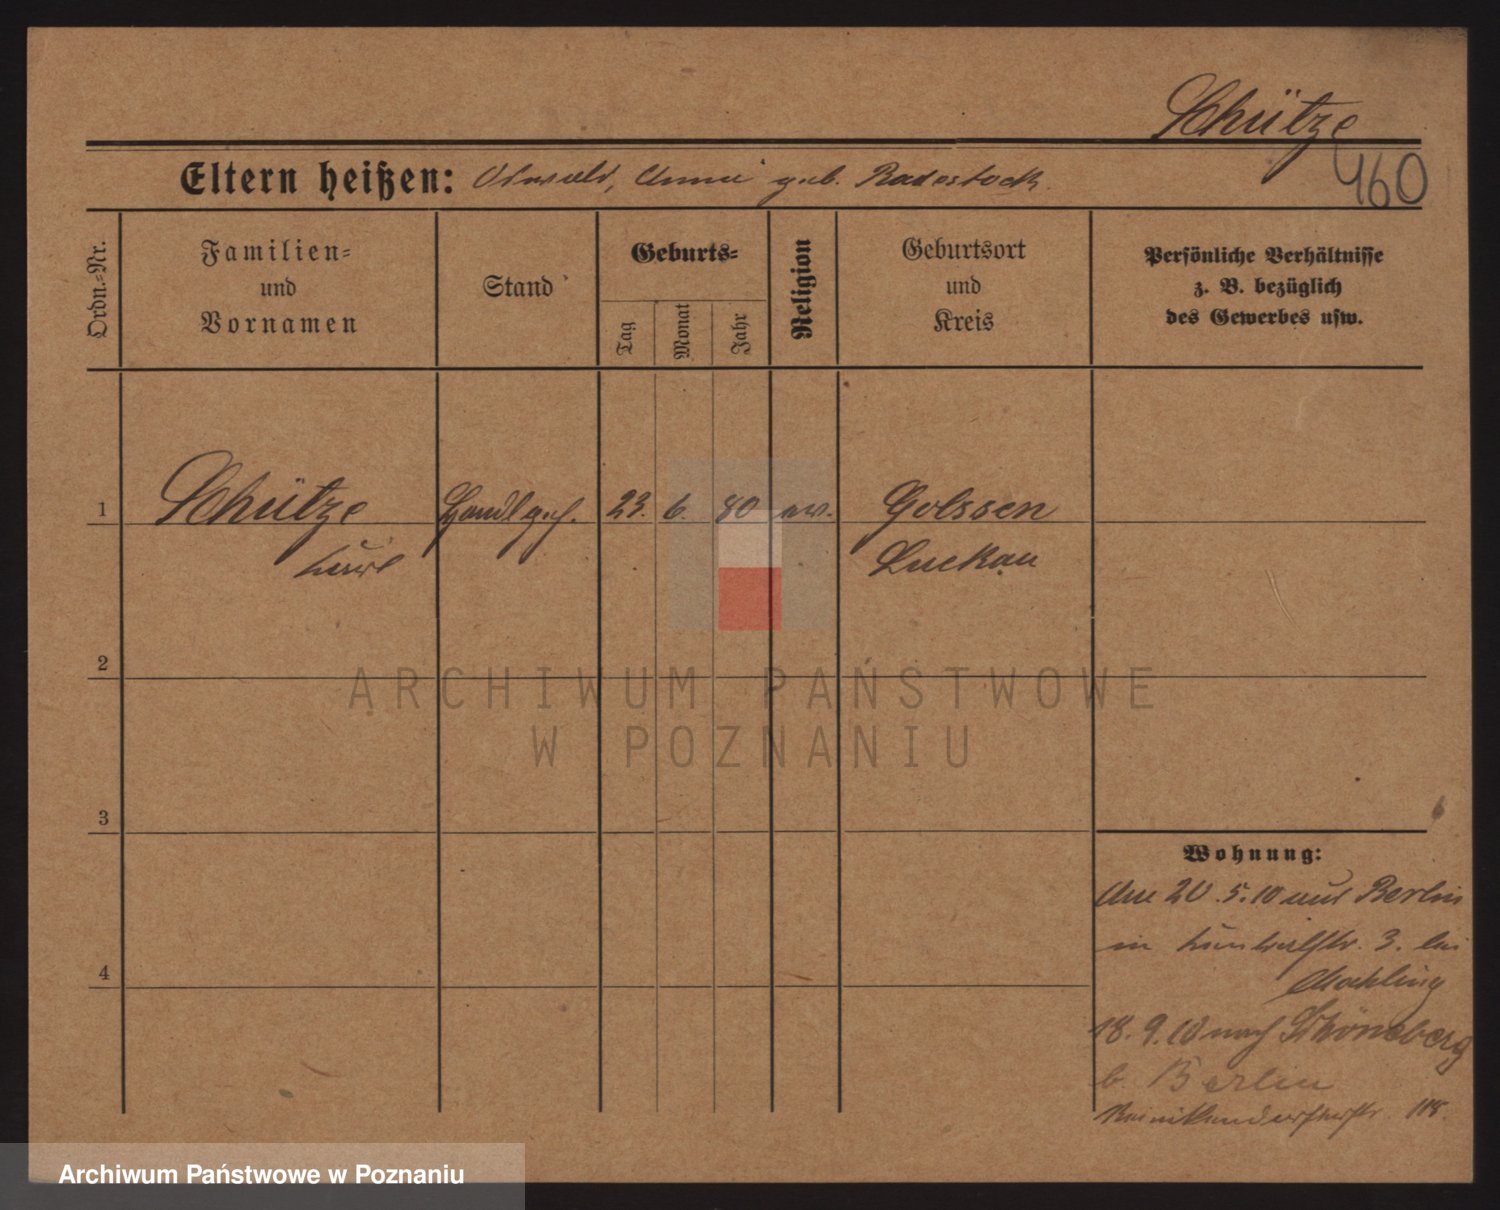 Schütze
460
Eltern heißen: Oswald, Anna geb. Radestock
Ordn.-Nr.
Familien-
und
Vornamen
Stand
Geburts-
Tag
Monat
Jahr
Religion
Geburtsort
und
Kreis
Persönliche Verhältnisse
z. B. bezüglich
des Gewerbes usw.
1
Schütze
Kurt
Handlgeh.
23. 6. 80
ev.
Golssen
Luckau
2
3
4
ARCHIWUM PAŃSTWOWE
W POZNANIU
Wohnung:
Am 20.5.10 aus Berlin
in 3. bei
18.9.10 nach Schöneberg
b. Berlin
118.
Archiwum Państwowe w Poznaniu